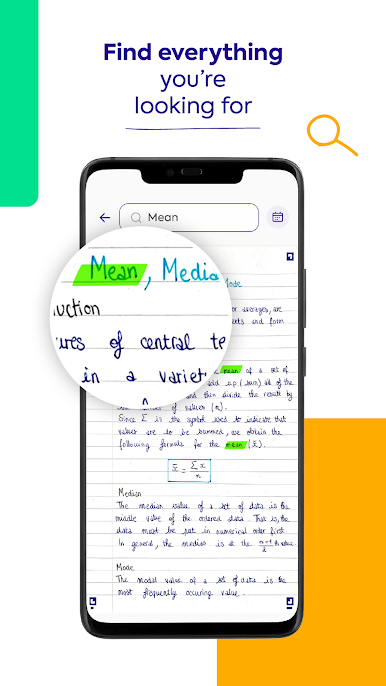 Find everything
you're
looking for
Mean
Mean, Media
Mode
uction
or averages, are
and form
ures of central te
in a variet
mean of a set of
add up (sum) all of the
and then divide the result by
of values (n).
Since Σ is the symbol used to indicate that
values are to be summed, we obtain the
following formula for the mean (x̄).
x̄ = Σx/n
Median
The median value of a set of data is the
middle value of the ordered data. That is, the
data must be put in numerical order first.
In general, the median is at the n+1/2 th value.
Mode
The modal value of a set of data is the
most frequently occuring value.